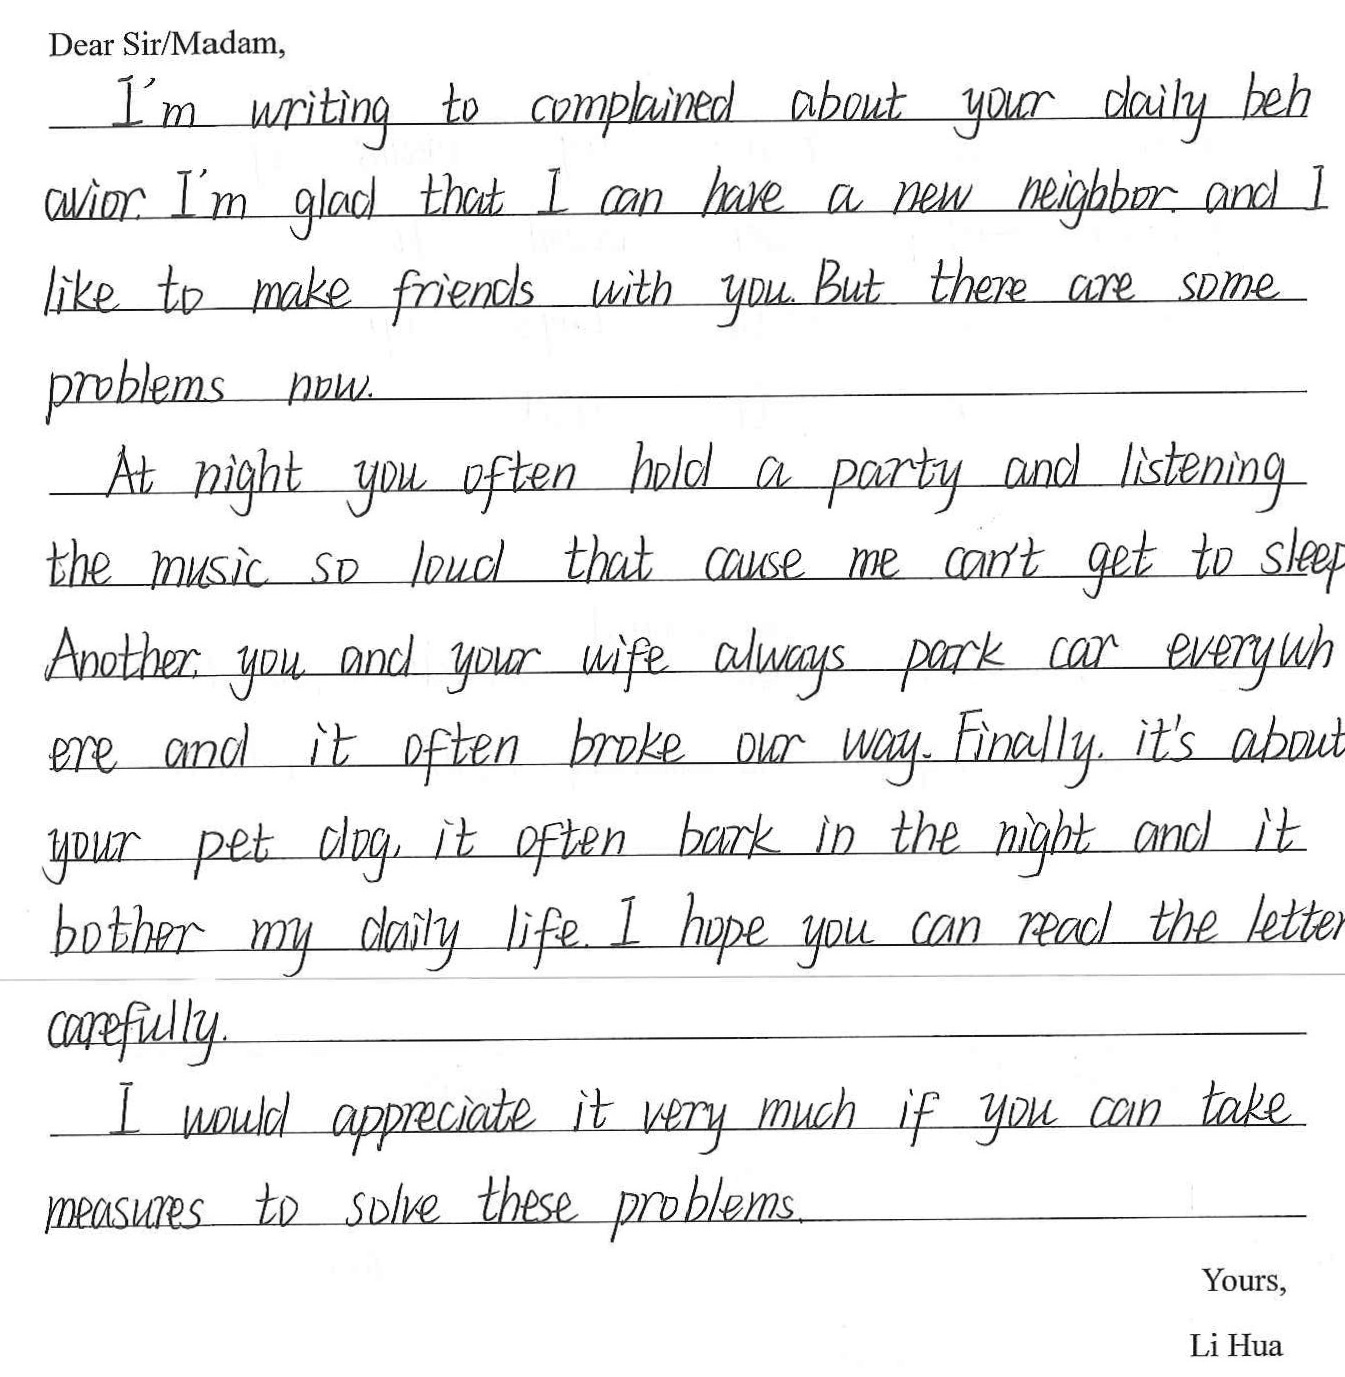 Dear Sir/Madam,
I'm writing to complained about your daily beh
avior. I'm glad that I can have a new neighbor. and I
like to make friends with you. But there are some
problems now.
At night you often hold a party and listening
the music so loud that cause me can't get to sleep
Another, you and your wife always park car everywh
ere and it often broke our way. Finally, it's about
your pet dog, it often bark in the night and it
bother my daily life. I hope you can read the letter
carefully.
I would appreciate it very much if you can take
measures to solve these problems.
Yours,
Li Hua